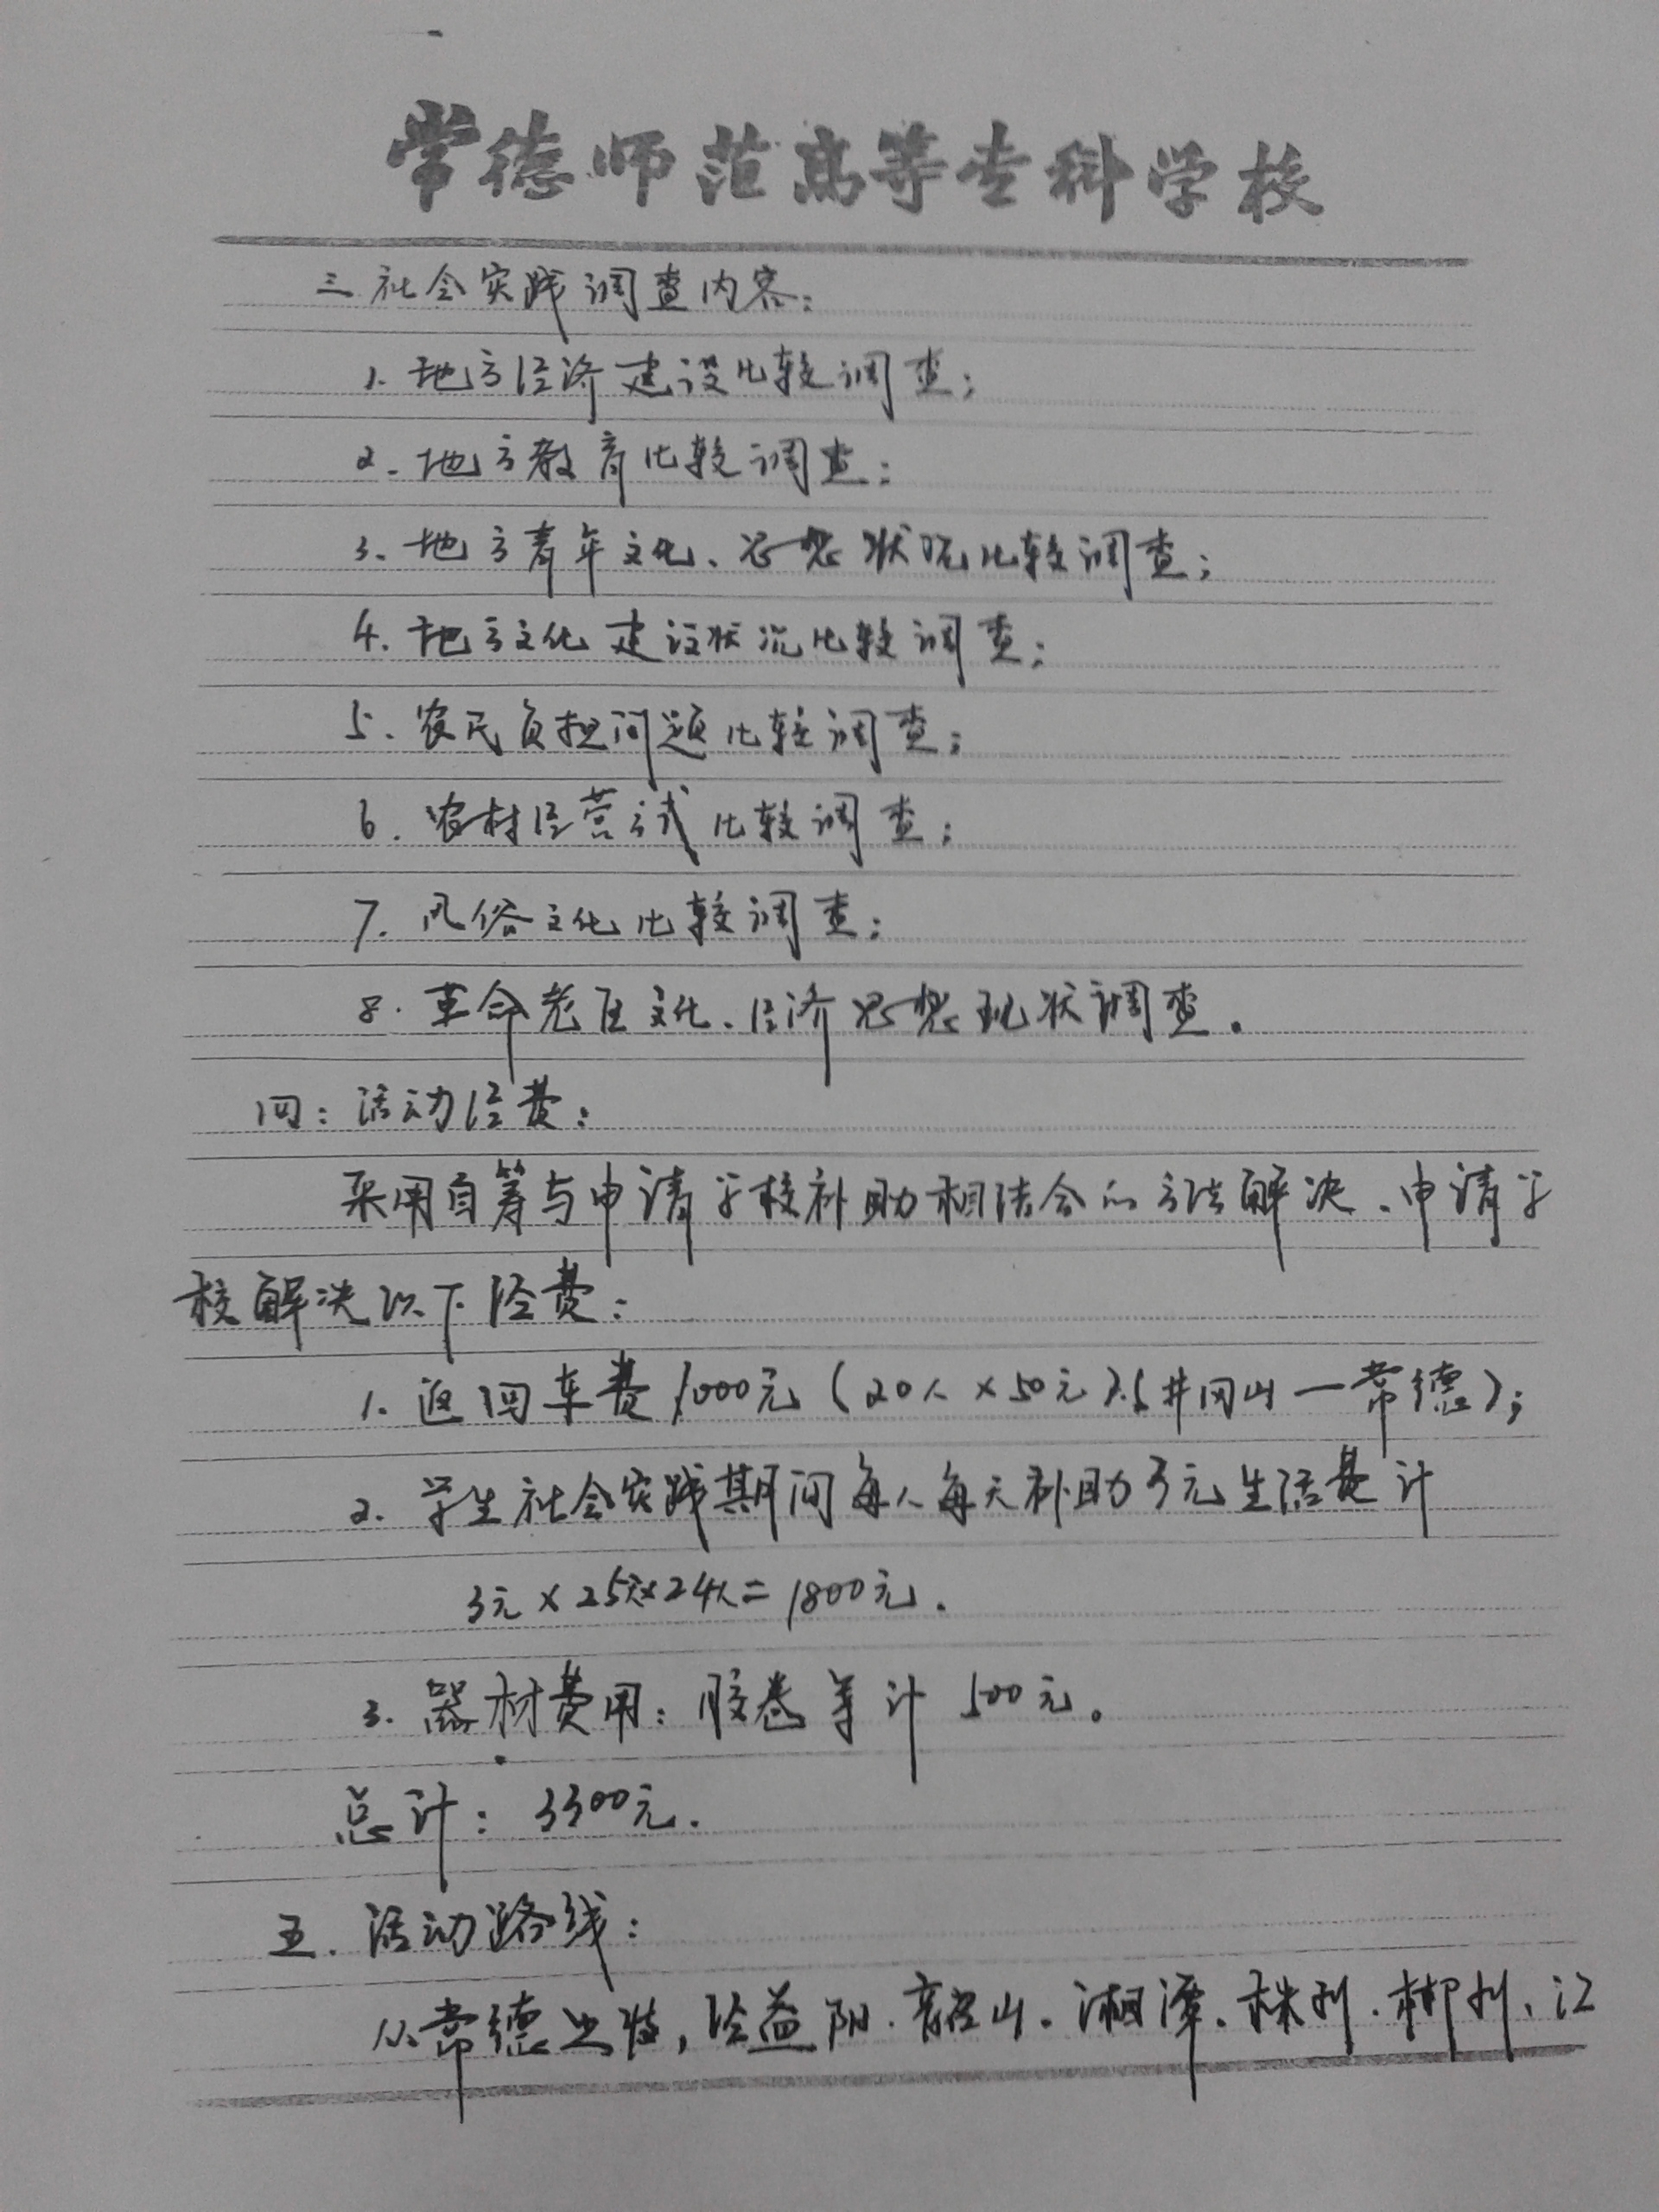 常德师范高等专科学校
三.社会实践调查内容:
1.地方经济建设比较调查;
2.地方教育比较调查;
3.地方青年文化、思想状况比较调查;
4.地方文化建设状况比较调查;
5.农民负担问题比较调查;
6.农村经营方式比较调查;
7.风俗文化比较调查;
8.革命老区文化、经济思想现状调查.
四:活动经费:
采用自筹与申请学校补助相结合的方法解决.申请学
校解决以下经费:
1.返回车费1000元(20人×50元 井冈山—常德);
2.学生社会实践期间每人每天补助3元生活费计
3元×25天×24人=1800元.
3.器材费用:胶卷等计500元。
总计:3300元.
五.活动路线:
从常德出发,经益阳.韶山.湘潭.株州.郴州、江